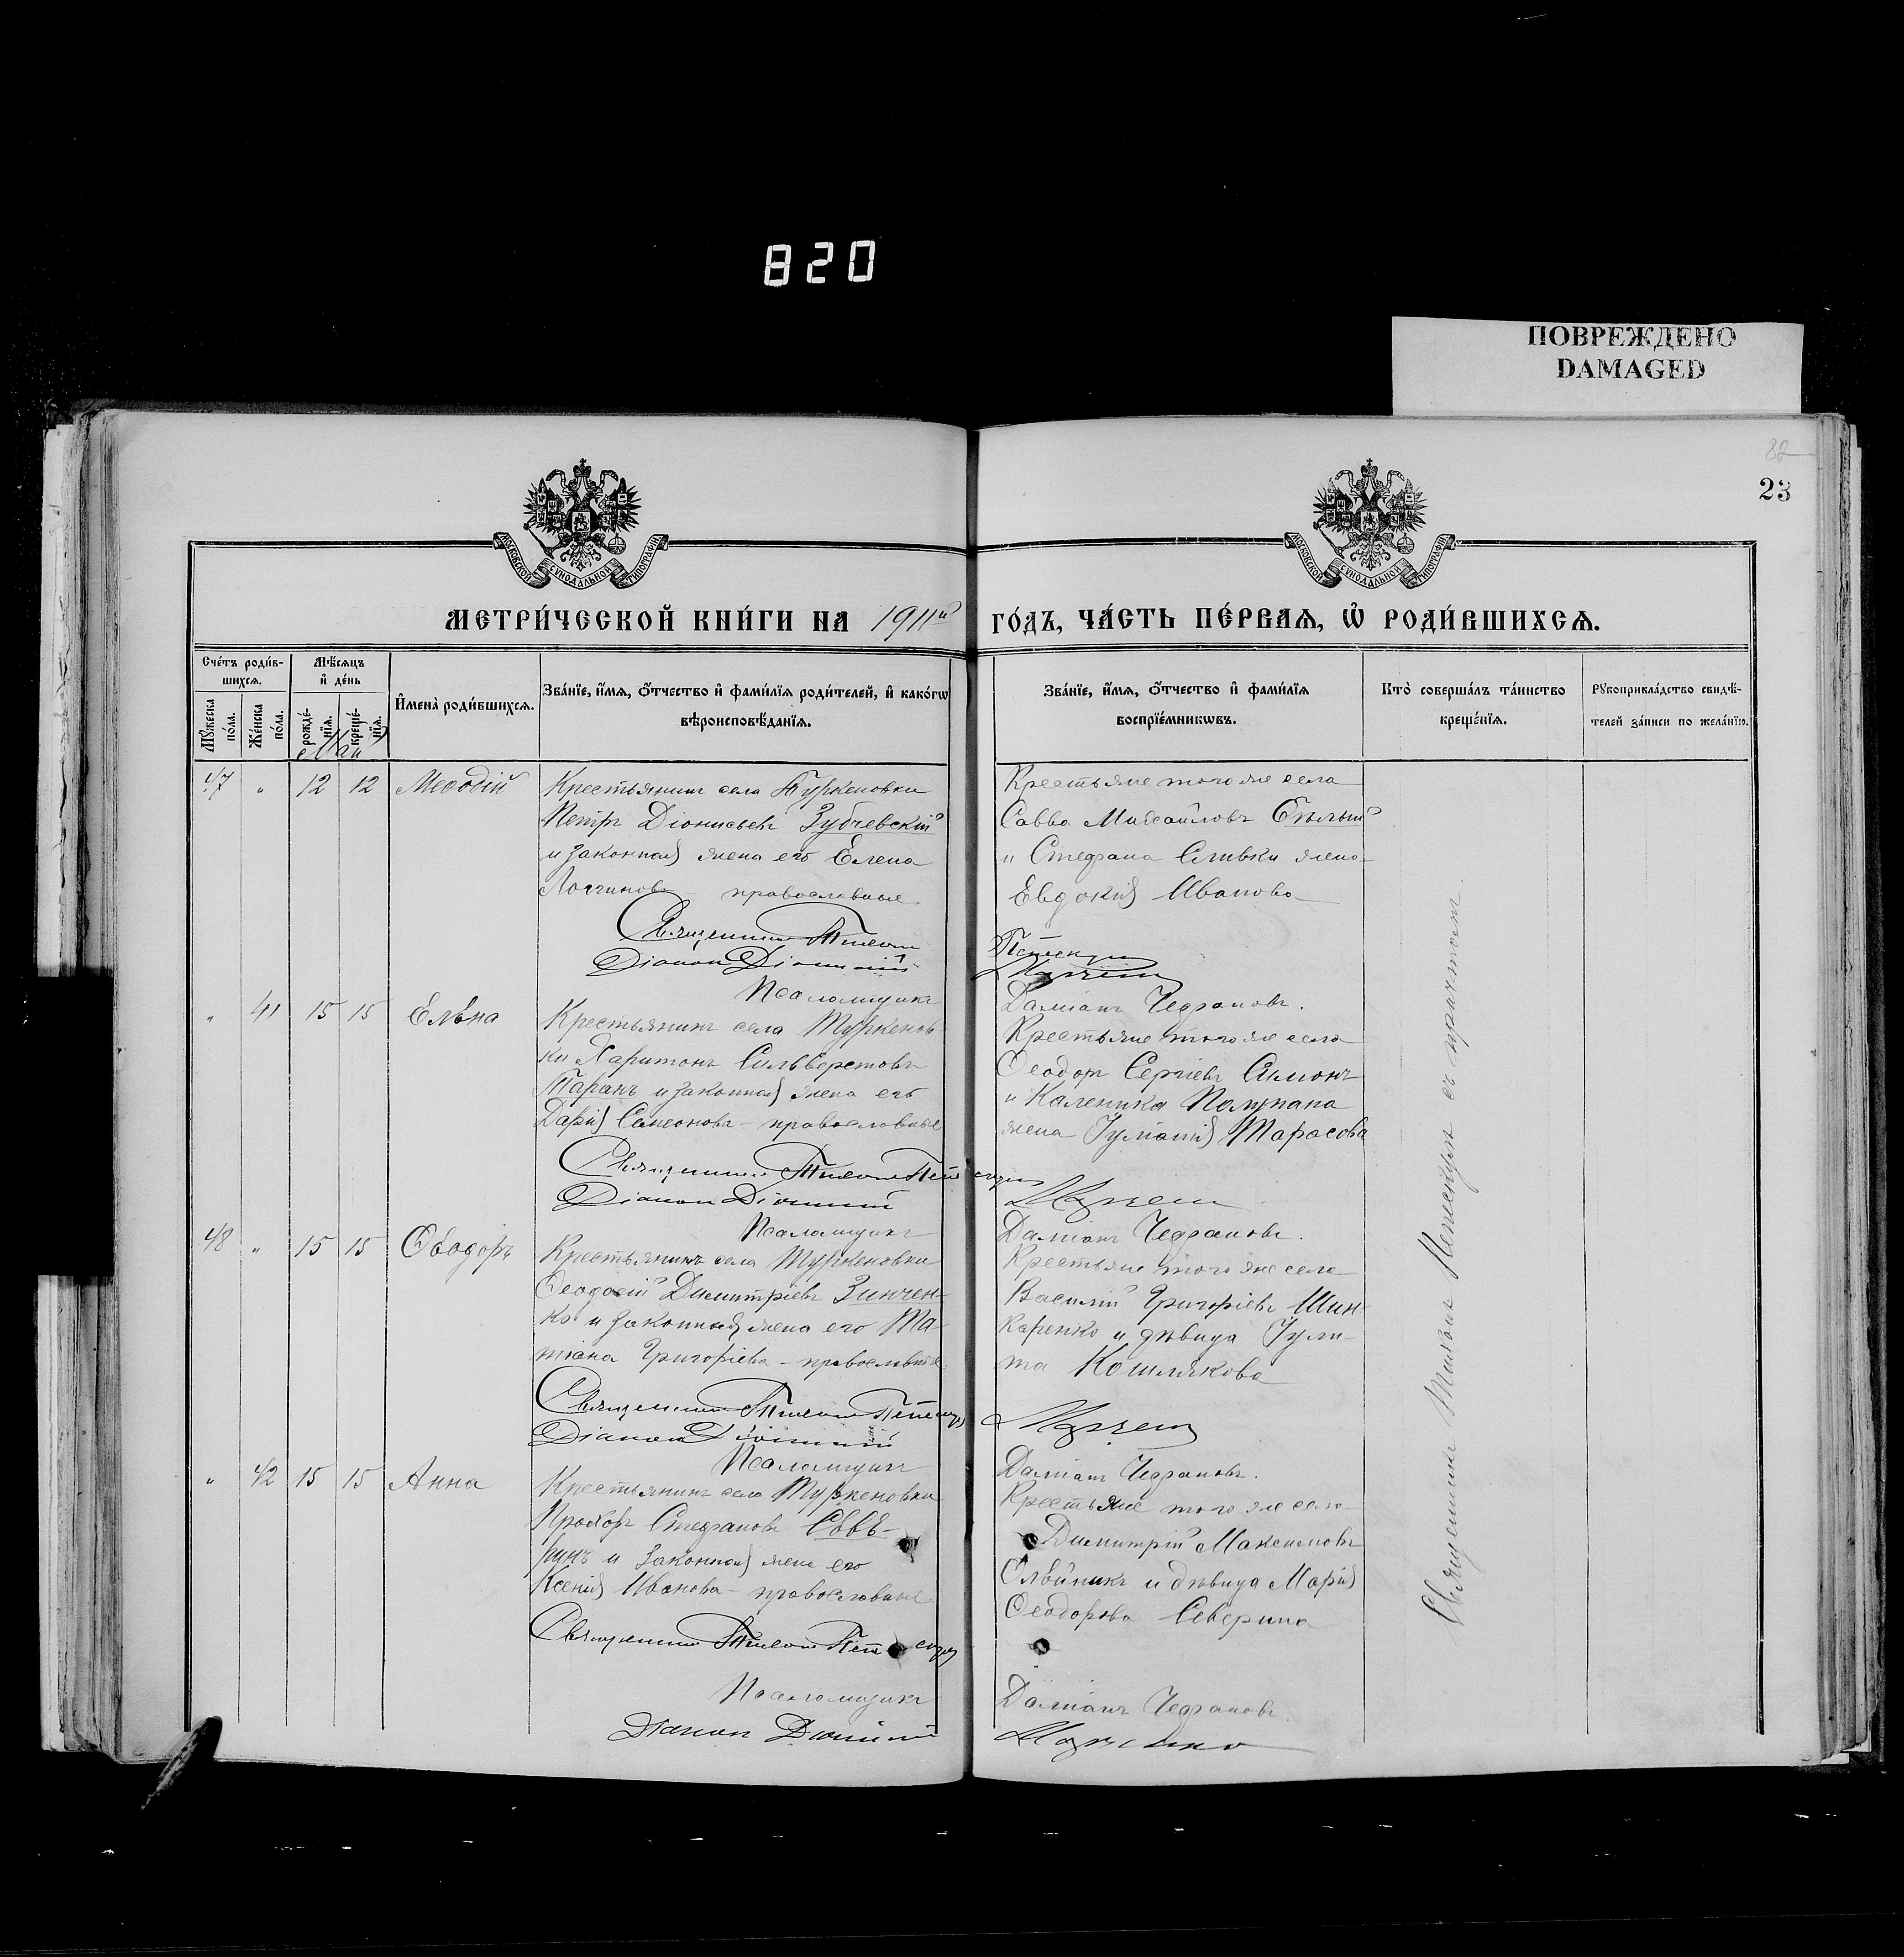 820
ПОВРЕЖДЕНО
DAMAGED
82
23
МОСКОВСКОЙ СѴНОДАЛЬНОЙ ТИПОГРАФІИ
МОСКОВСКОЙ СѴНОДАЛЬНОЙ ТИПОГРАФІИ
МЕТРИ́ЧЕСКОЙ КНИ́ГИ НА 1911й ГО́ДЪ, ЧА́СТЬ ПЕ́РВАѦ, Ѽ РОДИ́ВШИХСѦ.
Сче́тъ роди́в-
шихсѧ.
Мꙋ́жеска по́ла.
Же́нска по́ла.
Мѣ́сѧцъ
и҆ де́нь
рожде́-
нїѧ.
креще́-
нїѧ.
Май
И҆мена̀ роди́вшихсѧ.
Зва́нїе, и҆́мѧ, ѻ҆́тчество и҆ фами́лїѧ роди́телей, и҆ како́гѡ
вѣроисповѣ́данїѧ.
Зва́нїе, и҆́мѧ, ѻ҆́тчество и҆ фами́лїѧ
воспрїе́мникѡвъ.
Кто̀ соверша́лъ та́инство
креще́нїѧ.
Рꙋкоприкла́дство свидѣ́-
телей за́писи по жела́нїю.
47 " 12 12 Меѳодій
Крестьянинъ села Туркеновки
Петръ Діонисьевъ Зубчевскій
и законная жена его Елена
Логгинова православные
Священникъ Тихонъ
Діаконъ Діонисій
Псаломщикъ
Крестьяне того же села
Савва Михайловъ Бѣлый
и Стефана Сливки жена
Евдокія Иванова
Даміанъ Чефрановъ.
" 41 15 15 Елѣна
Крестьянинъ села Туркенов-
ки Харитонъ Сильверстовъ
Таранъ и законная жена его
Дарія Симеонова - православные
Священникъ Тихонъ
Діаконъ Діонисій
Псаломщикъ
Крестьяне того же села
Ѳеодоръ Сергіевъ Симонъ
и Каленика
жена Іуліанія Тарасова
Даміанъ Чефрановъ.
48 " 15 15 Ѳеодоръ
Крестьянинъ села Туркеновки
Ѳеодосій Димитріевъ Зинчен-
ко и законная жена его Та-
тіана Григоріева - православные
Священникъ Тихонъ
Діаконъ Діонисій
Псаломщикъ
Крестьяне того же села
Василій Григоріевъ Шин-
каренко и дѣвица Іули-
та Кошлякова
Даміанъ Чефрановъ.
" 42 15 15 Анна
Крестьянинъ села Туркеновки
Прохоръ Стефановъ Севе-
ринъ и законная жена его
Ксенія Иванова - православные
Священникъ Тихонъ
Псаломщикъ
Діаконъ Діонисій
Крестьяне того же села
Димитрій Максимовъ
Олейникъ и дѣвица Марія
Ѳеодорова Северина
Даміанъ Чефрановъ.
Священникъ Тихонъ съ причтомъ.